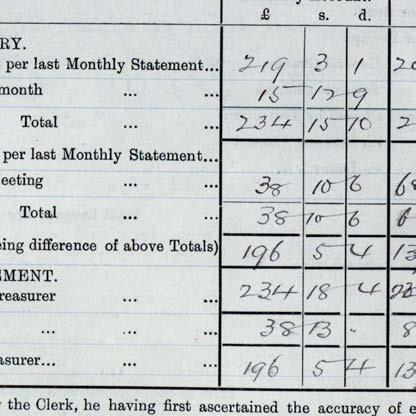 £ s. d.
RY.
per last Monthly Statement... 219 3 1 20
month ... ... 15 12 9
Total ... ... 234 15 10 2
per last Monthly Statement...
eeting ... ... 38 10 6 68
Total ... ... 38 10 6 6
eing difference of above Totals) 196 5 4 13
EMENT.
reasurer ... ... 234 18 4
... ... 38 13 - 8
asurer... ... ... 196 5 4 13
the Clerk, he having first ascertained the accuracy of e